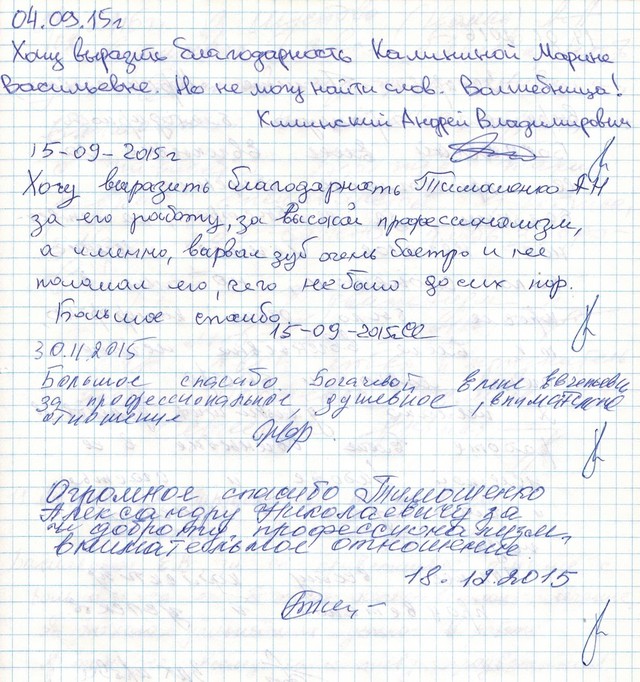 04.09.15г
Хочу выразить благодарность Калининой Марине
Васильевне. Но не могу найти слов. Волшебница!
Килинский Андрей Владимирович
15-09-2015г
Хочу выразить благодарность Тимошенко АН
за его работу, за высокой профессионализм,
а именно, вырвал зуб очень быстро и не
поламал его, чего не было до сих пор.
Большое спасибо.
15-09-2015г.
30.11.2015
Большое спасибо Богачевой Елене
за профессиональное, душевное, внимательное
отношение
Огромное спасибо Тимошенко
Александру Николаевичу за
доброту, профессионализм,
внимательное отношение.
18.12.2015